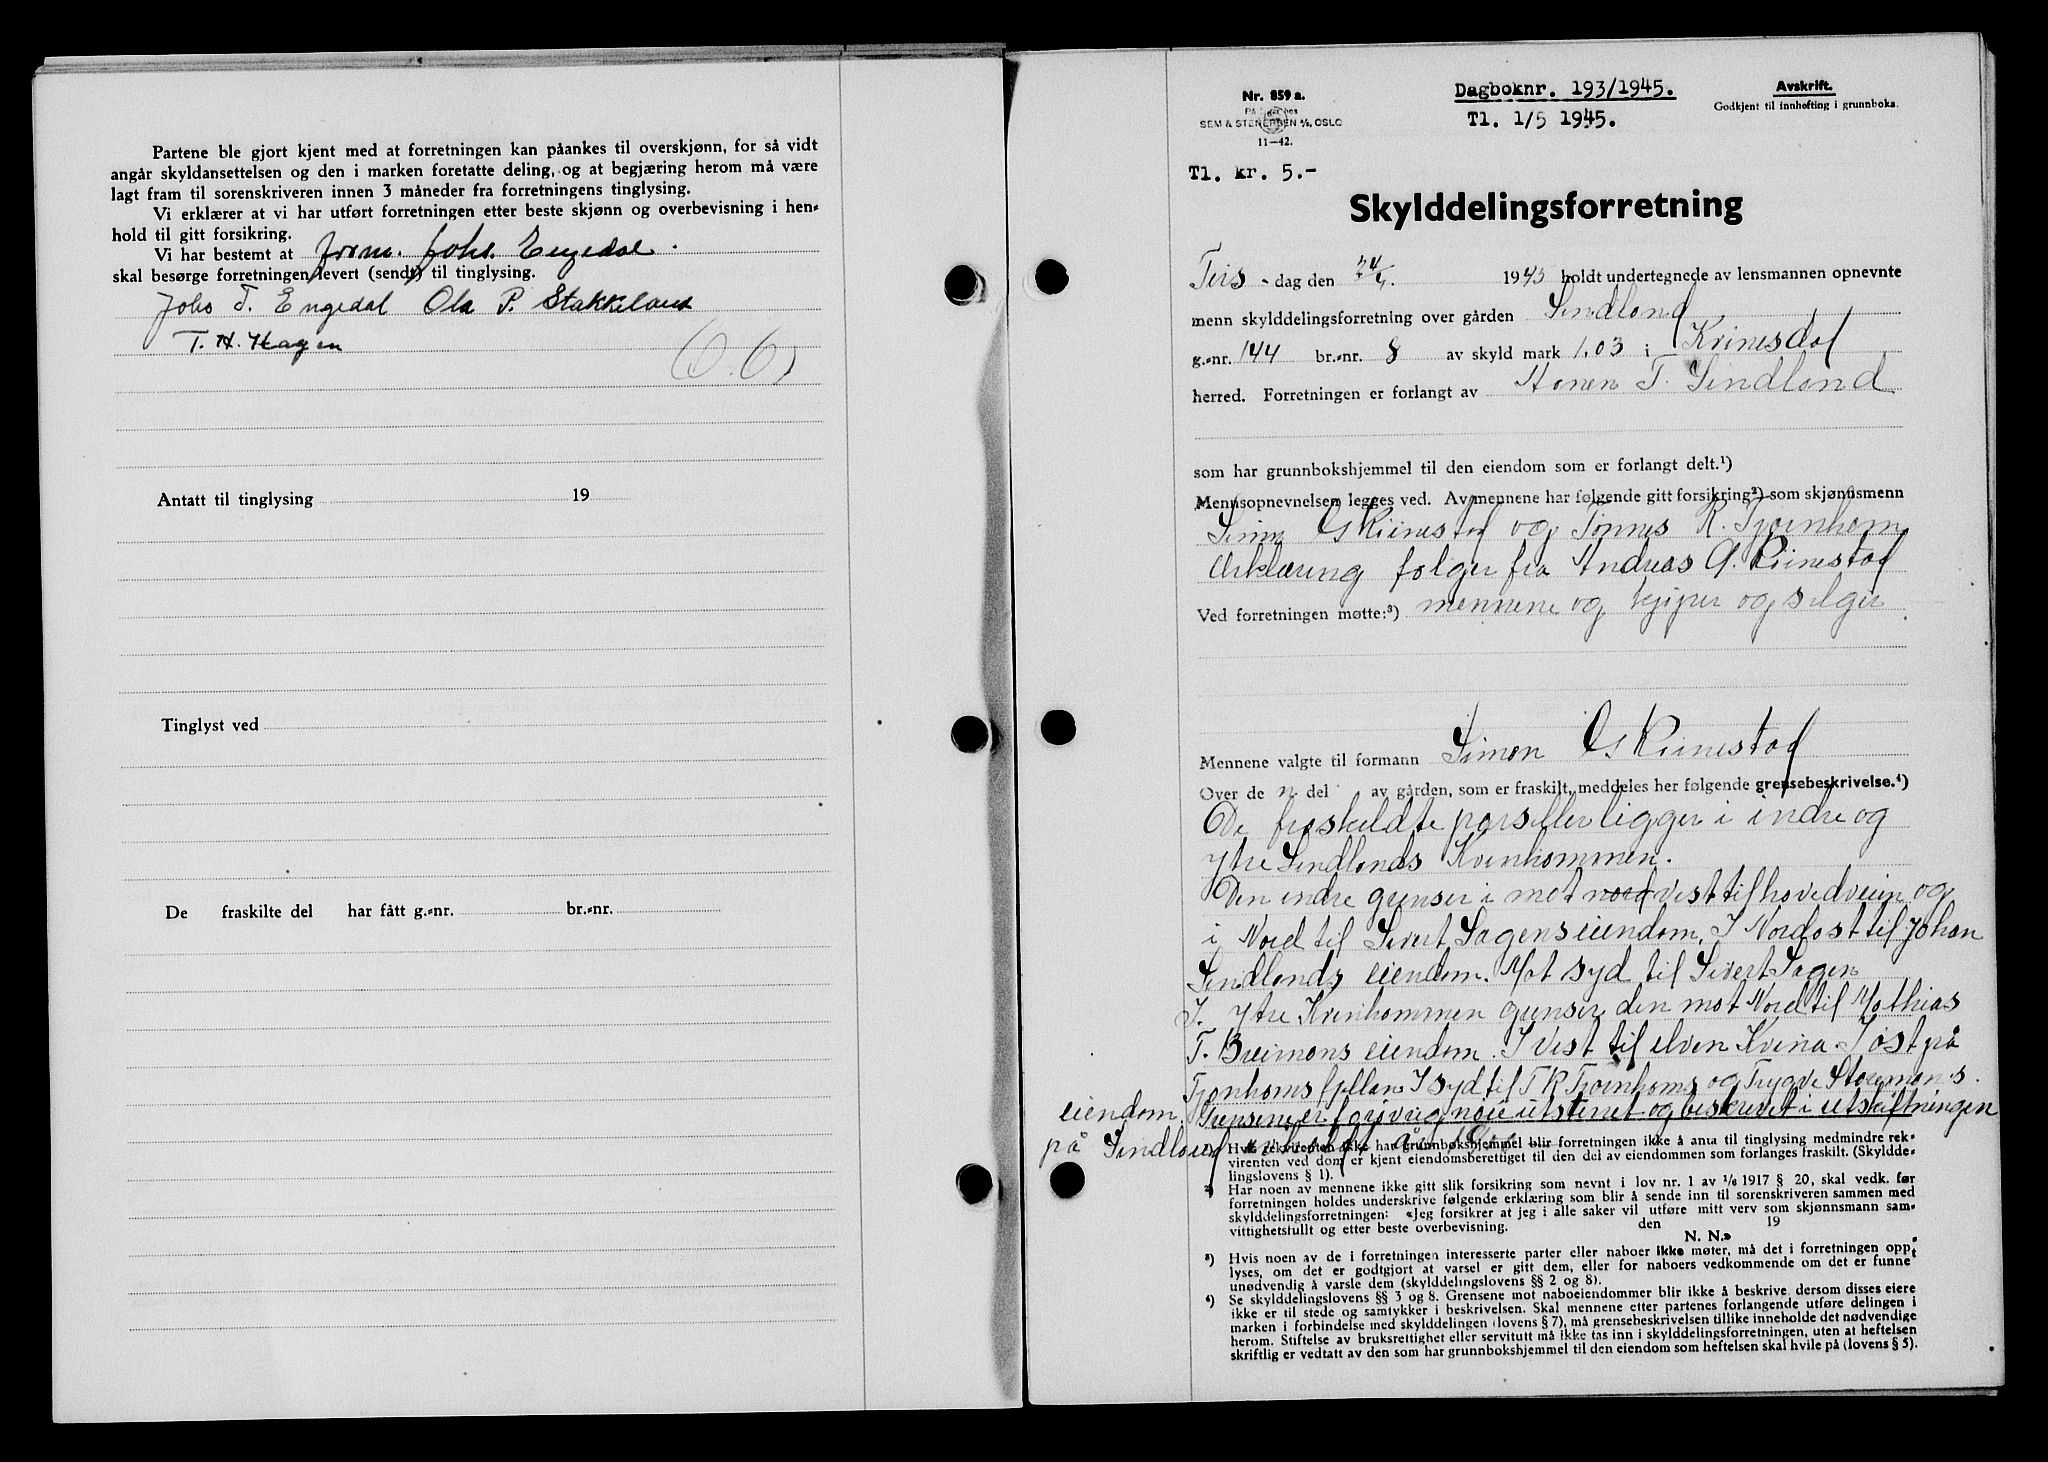 Partene ble gjort kjent med at forretningen kan påankes til overskjønn, for så vidt
angår skyldansettelsen og den i marken foretatte deling, og at begjæring herom må være
lagt fram til sorenskriveren innen 3 måneder fra forretningens tinglysing.
Vi erklærer at vi har utført forretningen etter beste skjønn og overbevisning i hen-
hold til gitt forsikring.
Vi har bestemt at form. Johs. Engedal.
skal besørge forretningen levert (sendt) til tinglysing.
Johs T. Engedal Ola P. Stakkeland
T. H. Hagen
Antatt til tinglysing 19
Tinglyst ved
De fraskilte del har fått g.-nr. br.-nr.
Nr. 859 a.
SEM & STENERSEN A/S, OSLO
11—42.
Dagboknr. 193/1945.
Tl. 1/5 1945.
Avskrift.
Godkjent til innhefting i grunnboka.
Tl. kr. 5.-
Skylddelingsforretning
Tirs-dag den 24/4. 1945 holdt undertegnede av lensmannen opnevnte
menn skylddelingsforretning over gården Sindland
g.-nr. 144 br.-nr. 8 av skyld mark 1,03 i Kvinesdal
herred. Forretningen er forlangt av T. Sindland
som har grunnbokshjemmel til den eiendom som er forlangt delt.¹)
Mennsopnevnelsen legges ved. Av mennene har følgende gitt forsikring²) som skjønnsmenn
Simon G Rinestad og Tønnes K. Tjørnhom
Erklæring følger fra Andreas G. Rinestad
Ved forretningen møtte:³) mennene og kjøper og selger
Mennene valgte til formann Simon G Rinestad
Over de n del av gården, som er fraskilt, meddeles her følgende grensebeskrivelse.⁴)
De fraskildte parseller ligger i indre og
ytre Sindlands Kvinhommen.
Den indre grenser i mot nord vest til hovedveien og
i Nord til Sivert Sagens eiendom. I Nordost til Johan
Sindlands eiendom. Mot syd til Sivert Sagen
I. ytre Kvinhommen grenser den mot Nord til Mathias
T. Breimons eiendom. I vest til elven Kvina. I øst på
Tjønhomsfjellan I syd til T K Tjørnhoms og Trygve Storemons
eiendom. Grensene er forøvrig nøie utstenet og beskrevet i utskiftningen
på Sindland
¹) Hvis rekvirenten ikke har grunnbokshjemmel blir forretningen ikke å anta til tinglysing medmindre rek-
virenten ved dom er kjent eiendomsberettiget til den del av eiendommen som forlanges fraskilt. (Skyldde-
lingslovens § 1).
²) Har noen av mennene ikke gitt slik forsikring som nevnt i lov nr. 1 av 1/6 1917 § 20, skal vedk. før
forretningen holdes underskrive følgende erklæring som blir å sende inn til sorenskriveren sammen med
skylddelingsforretningen: «Jeg forsikrer at jeg i alle saker vil utføre mitt verv som skjønnsmann sam-
vittighetsfullt og etter beste overbevisning. den 19
N. N.»
³) Hvis noen av de i forretningen interesserte parter eller naboer ikke møter, må det i forretningen opp-
lyses, om det er godtgjort at varsel er gitt dem, eller for naboers vedkommende om det er funnet
unødvendig å varsle dem (skylddelingslovens §§ 2 og 8).
⁴) Se skylddelingslovens §§ 3 og 8. Grensene mot naboeiendommer blir ikke å beskrive, dersom disses eiere
ikke er til stede og samtykker i beskrivelsen. Skal mennene etter partenes forlangende utføre delingen i
marken i forbindelse med skylddelingen (lovens § 7), må grensebeskrivelsen tillike inneholde det nødvendige
herom. Stiftelse av bruksrettighet eller servitutt må ikke tas inn i skylddelingsforretningen, uten at heftelsen
skriftlig er vedtatt av den som har grunnbokshjemmel til den eiendom som heftelsen skal hvile på (lovens § 5).